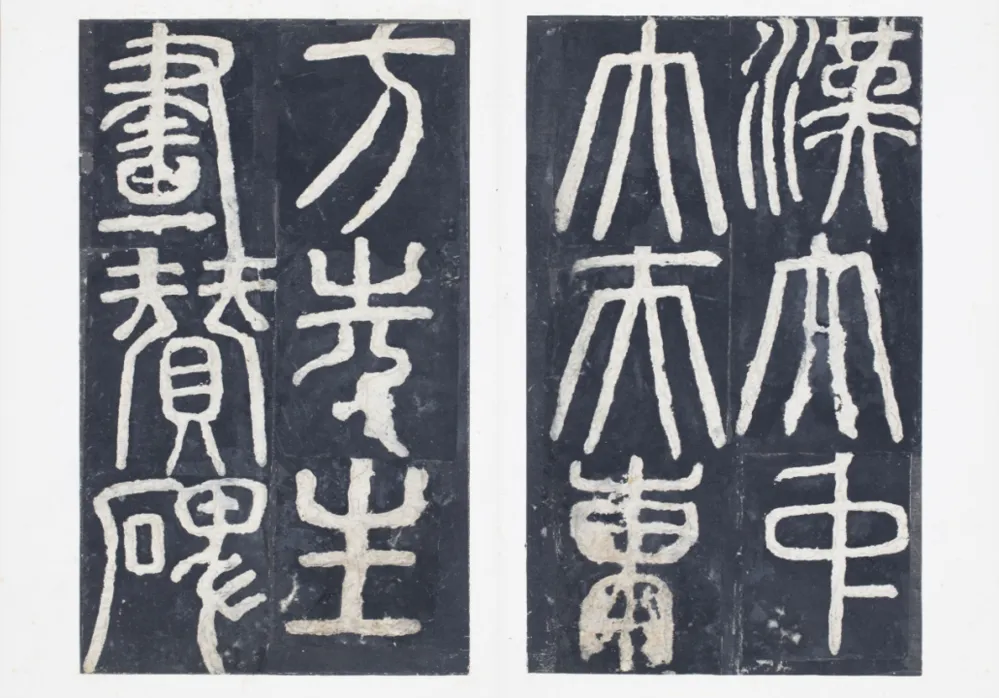 漢太中
大夫東
方先生
畫贊碑